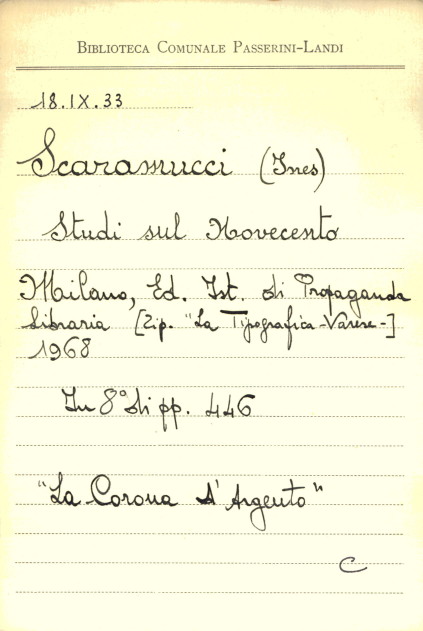 BIBLIOTECA COMUNALE PASSERINI-LANDI
18.IX.33
Scaramucci (Ines)
Studi sul Novecento
Milano, Ed. Ist. di Propaganda
Libraria [Tip. "La Tipografica-Varese-]
1968
In 8° di pp. 446
"La Corona d'Argento"
C